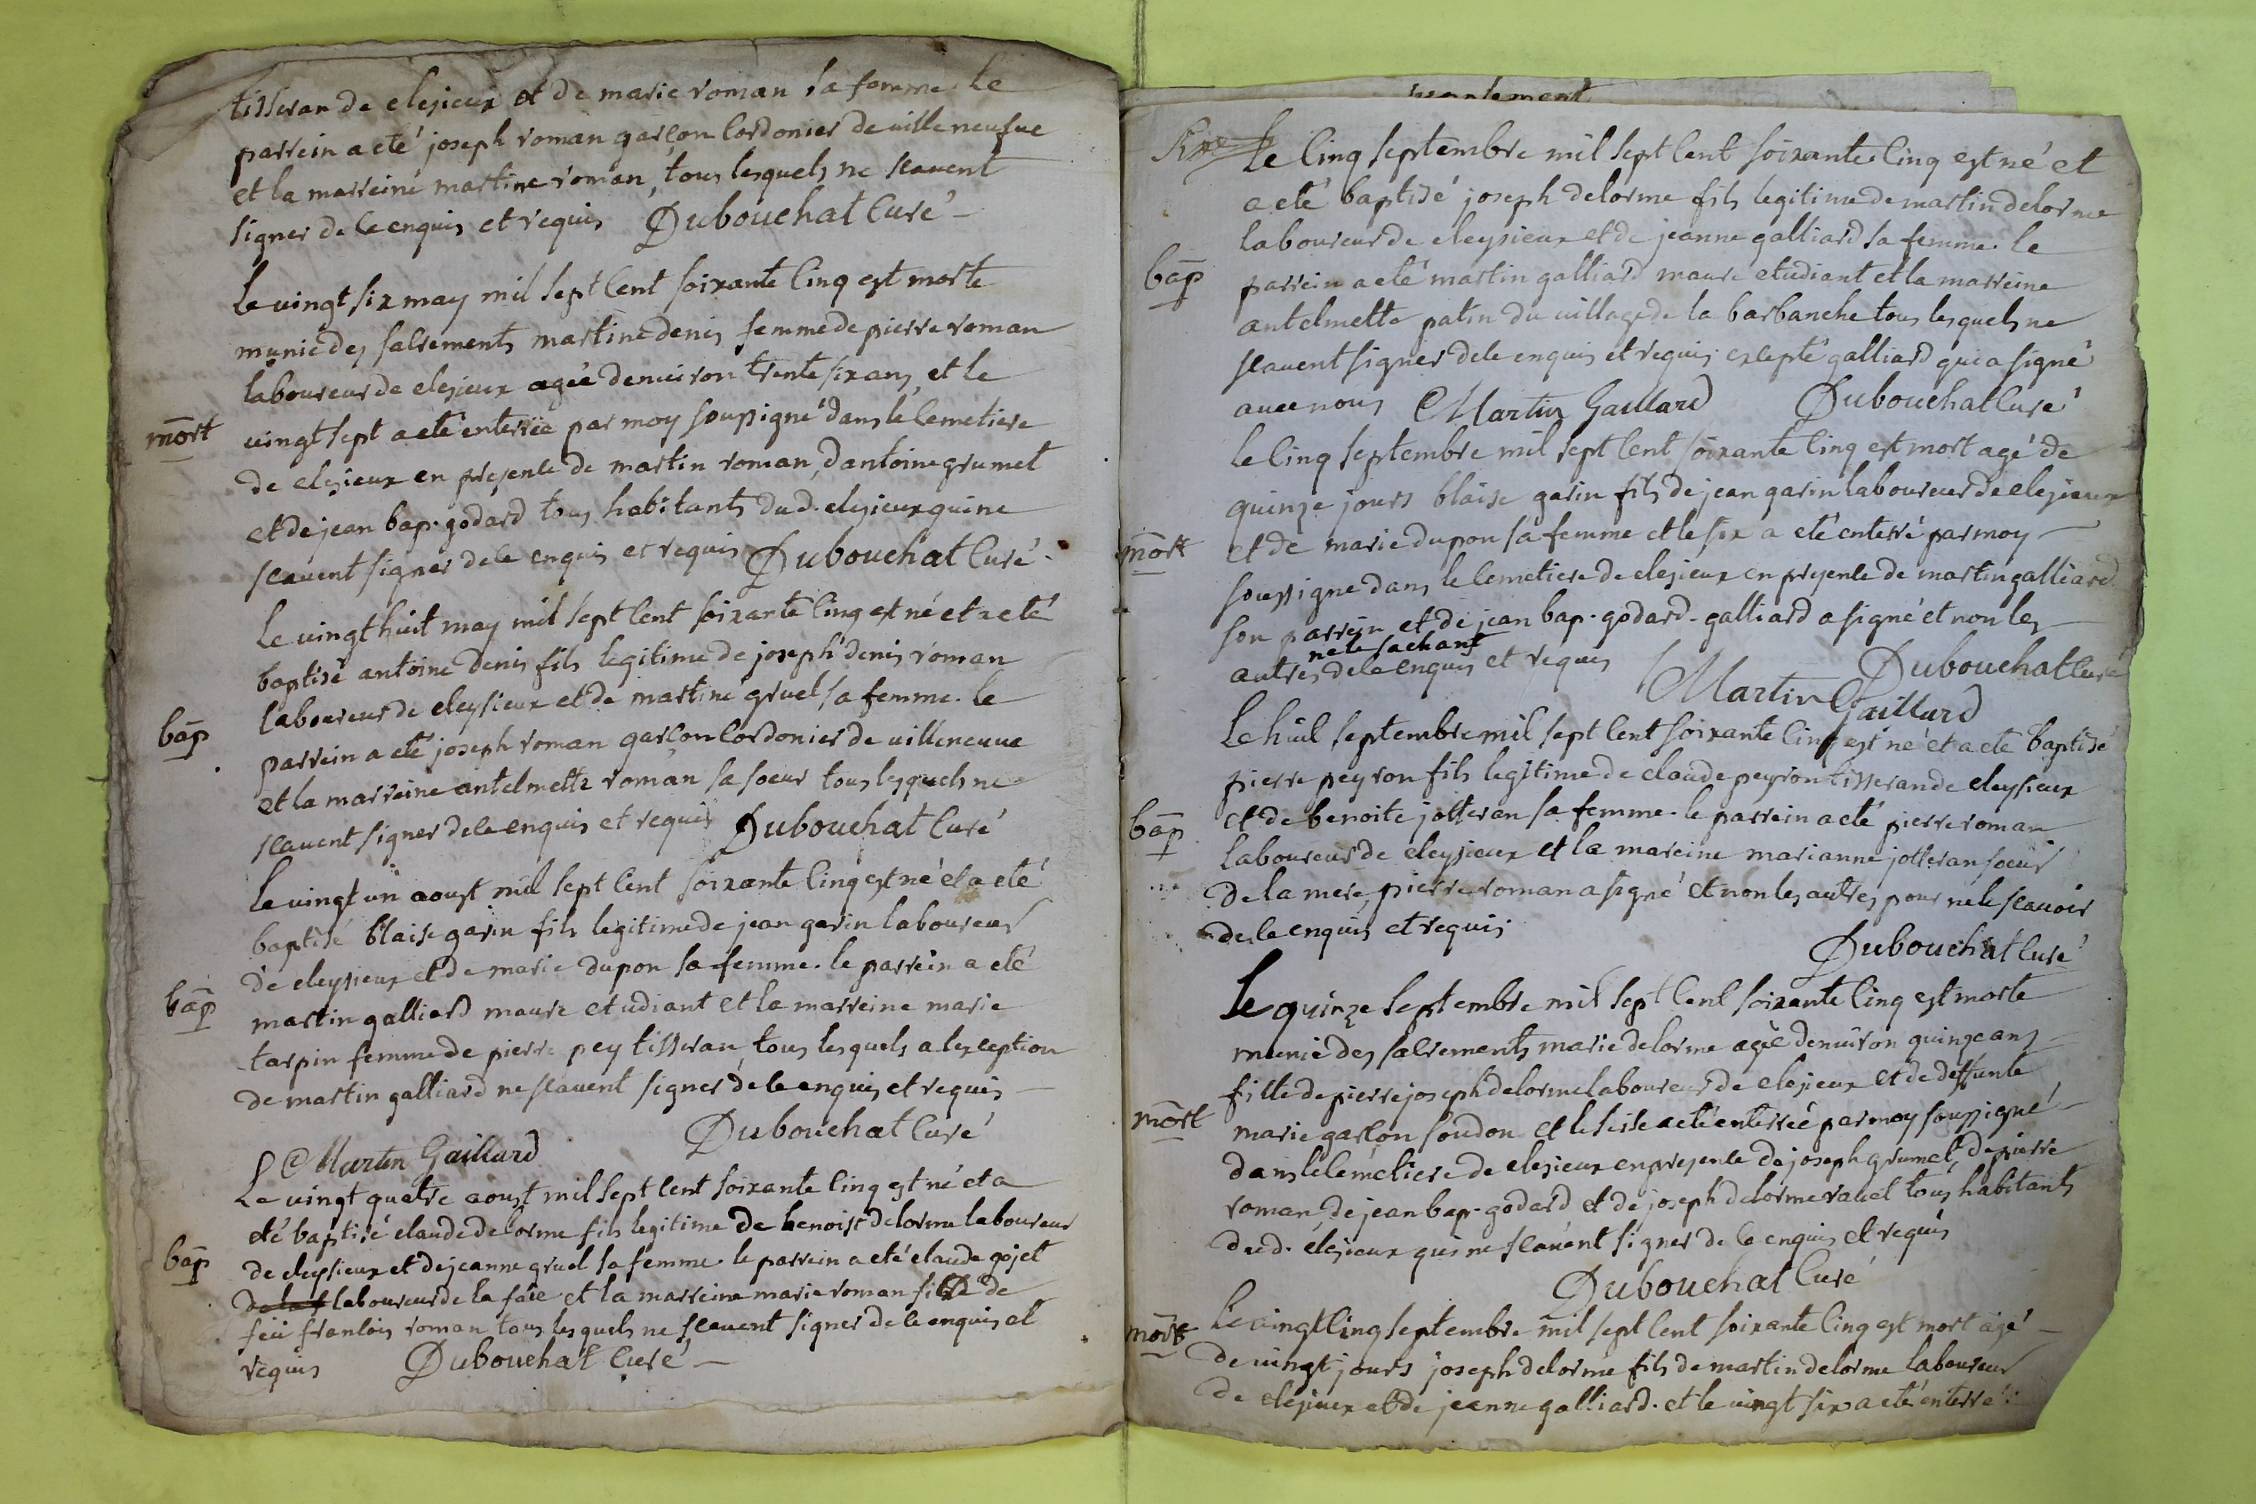 tisseran de elesieux et de marie roman sa femme. le
parrein a eté joseph roman garçon cordonier de uilleneufue
et la marreine martine roman, tous lesquels ne scauent
signer de ce enquis et requis Dubouchat Curé
le uingt six may mil sept cent soixante cinq est morte
munie des sacrements martine denis femme de pierre roman
laboureur de elesieux agée denuiron trente six ans et le
mort
uingt sept a eté enterrée par moy soussigné dans le cemetiere
de elesieux en presence de martin roman, d'antoine grumet
et de jean bap. godard tous habitants dud. elesieux qui ne
scauent signer de ce enquis et requis Dubouchat Curé
le uingt huit may mil sept cent soixante cinq est né et a eté
baptisé antoine denis fils legitime de joseph denis roman
laboureur de eleysieux et de martine gruel sa femme. le
bap
parrein a eté joseph roman garçon cordonier de uilleneuue
et la marreine antelmette roman sa soeur tous lesquels ne
scauent signer de ce enquis et requis Dubouchat Curé
le uingt un aoust mil sept cent soixante cinq est né et a eté
baptisé blaise garin fils legitime de jean garin laboureur
de eleysieux et de marie dupon sa femme. le parrein a eté
bap
martin galliard maure etudiant et la marreine marie
tarpin femme de pierre pey tisseran, tous lesquels a lexception
de martin galliard ne scauent signer de ce enquis et requis
Martin Gaillard Dubouchat Curé
Le uingt quatre aoust mil sept cent soixante cinq est né et a
eté baptisé claude delorme fils legitime de benoist delorme laboureur
bap
de eleysieux et de jeanne gruel sa femme. le parrein a eté claude gojet
laboureur de la faie et la marreine marie roman fille de
feü francois roman tous lesquels ne scauent signer de ce enquis et
requis Dubouchat Curé
supplement
le cinq septembre mil sept cent soixante cinq est né et
a eté baptisé joseph delorme fils legitime de martin delorme
laboureur de eleysieux et de jeanne galliard sa femme. le
bap
parrein a eté martin galliard maure etudiant et la marreine
antelmette patin du uillage de la barbanche tous lesquels ne
scauent signer de ce enquis et requis excepté galliard qui a signé
auec nous Martin Gaillard Dubouchat Curé
le cinq septembre mil sept cent soixante cinq est mort agé de
quinze jours blaise garin fils de jean garin laboureur de elesieux
mort
et de marie dupon sa femme et le six a eté enterré par moy
soussigné dans le cemetiere de elesieux en presence de martin galliard
son parrein et de jean bap. godard. galliard a signé et non les
ne le sachant
autres de ce enquis et requis Dubouchat Curé
Martin Gaillard
Le huit septembre mil sept cent soixante cinq est né et a eté baptisé
pierre peyron fils legitime de claude peyron tisseran de eleysieux
bap
et de benoite jotteran sa femme. le parrein a eté pierre roman
laboureur de eleysieux et la mareine marianne jotteran soeur
de la mere, pierre roman a signé et non les autres pour ne le scauoir
de ce enquis et requis
Dubouchat Curé
Le quinze septembre mil sept cent soixante cinq est morte
munie des sacrements marie delorme agée denuiron quinze ans
fille de pierre joseph delorme laboureur de elesieux et de deffunte
mort
marie garçon soudon et le seise a eté enterrée par moy soussigné
dans le cemetiere de elesieux en presence de joseph grumet, de pierre
roman, de jean bap. godard et de joseph delorme rauet tous habitants
dud. elesieux qui ne scauent signer de ce enquis et requis
Dubouchat Curé
mort
le uingt cinq septembre mil sept cent soixante cinq est mort agé
de uingt jours joseph delorme fils de martin delorme laboureur
de elesieux et de jeanne galliard. et le uingt six a eté enterré